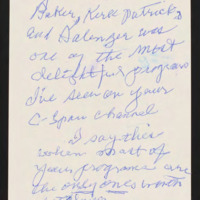 Baker, Kirk Patrick,
and Balenger was
one of the most
delightful programs
I've seen on your
C-Span Channel
I say this
when most of
your programs are
the only ones worth